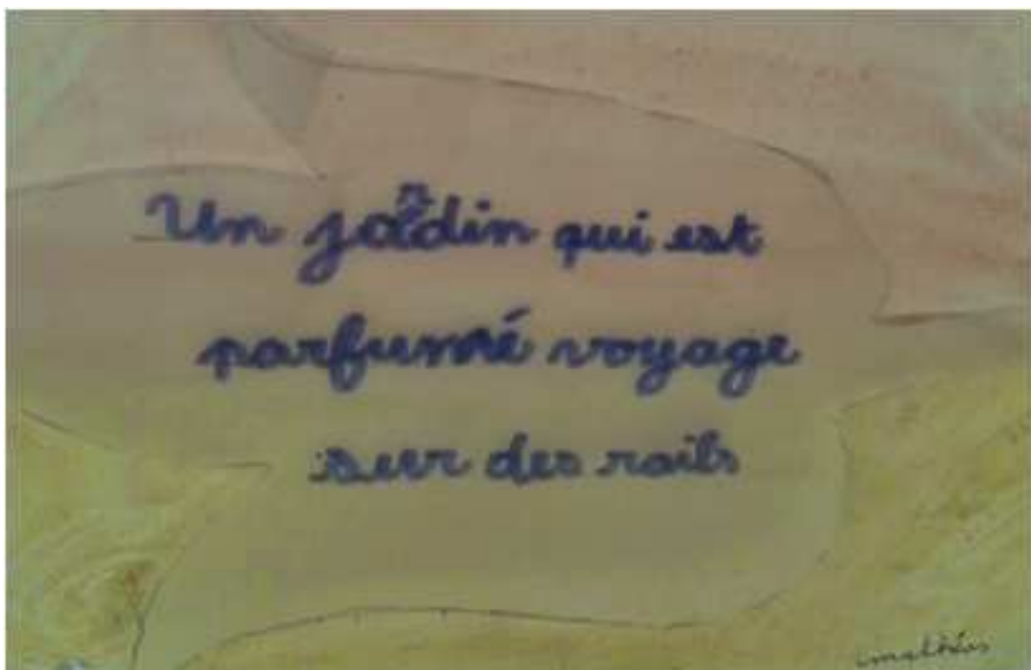 Un jardin qui est
parfumé voyage
sur des rails
mathéis